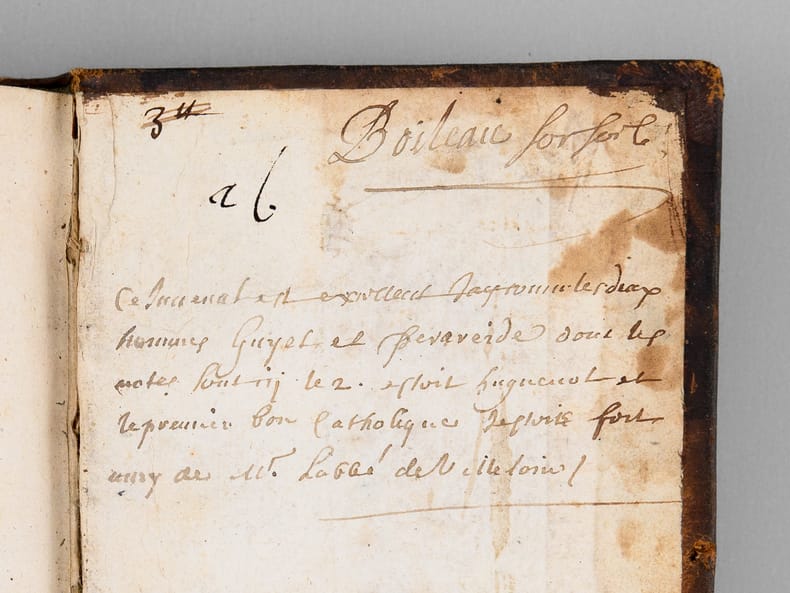 3
26.
Boileau
Ce Juuenal est excellent Jay connu les deux
hommes Guyet et dont les
notes sont icy le 2. estoit huguenot et
le premier bon Catholique Jestois fort
amy de Mr. Labbé de Villeloin /